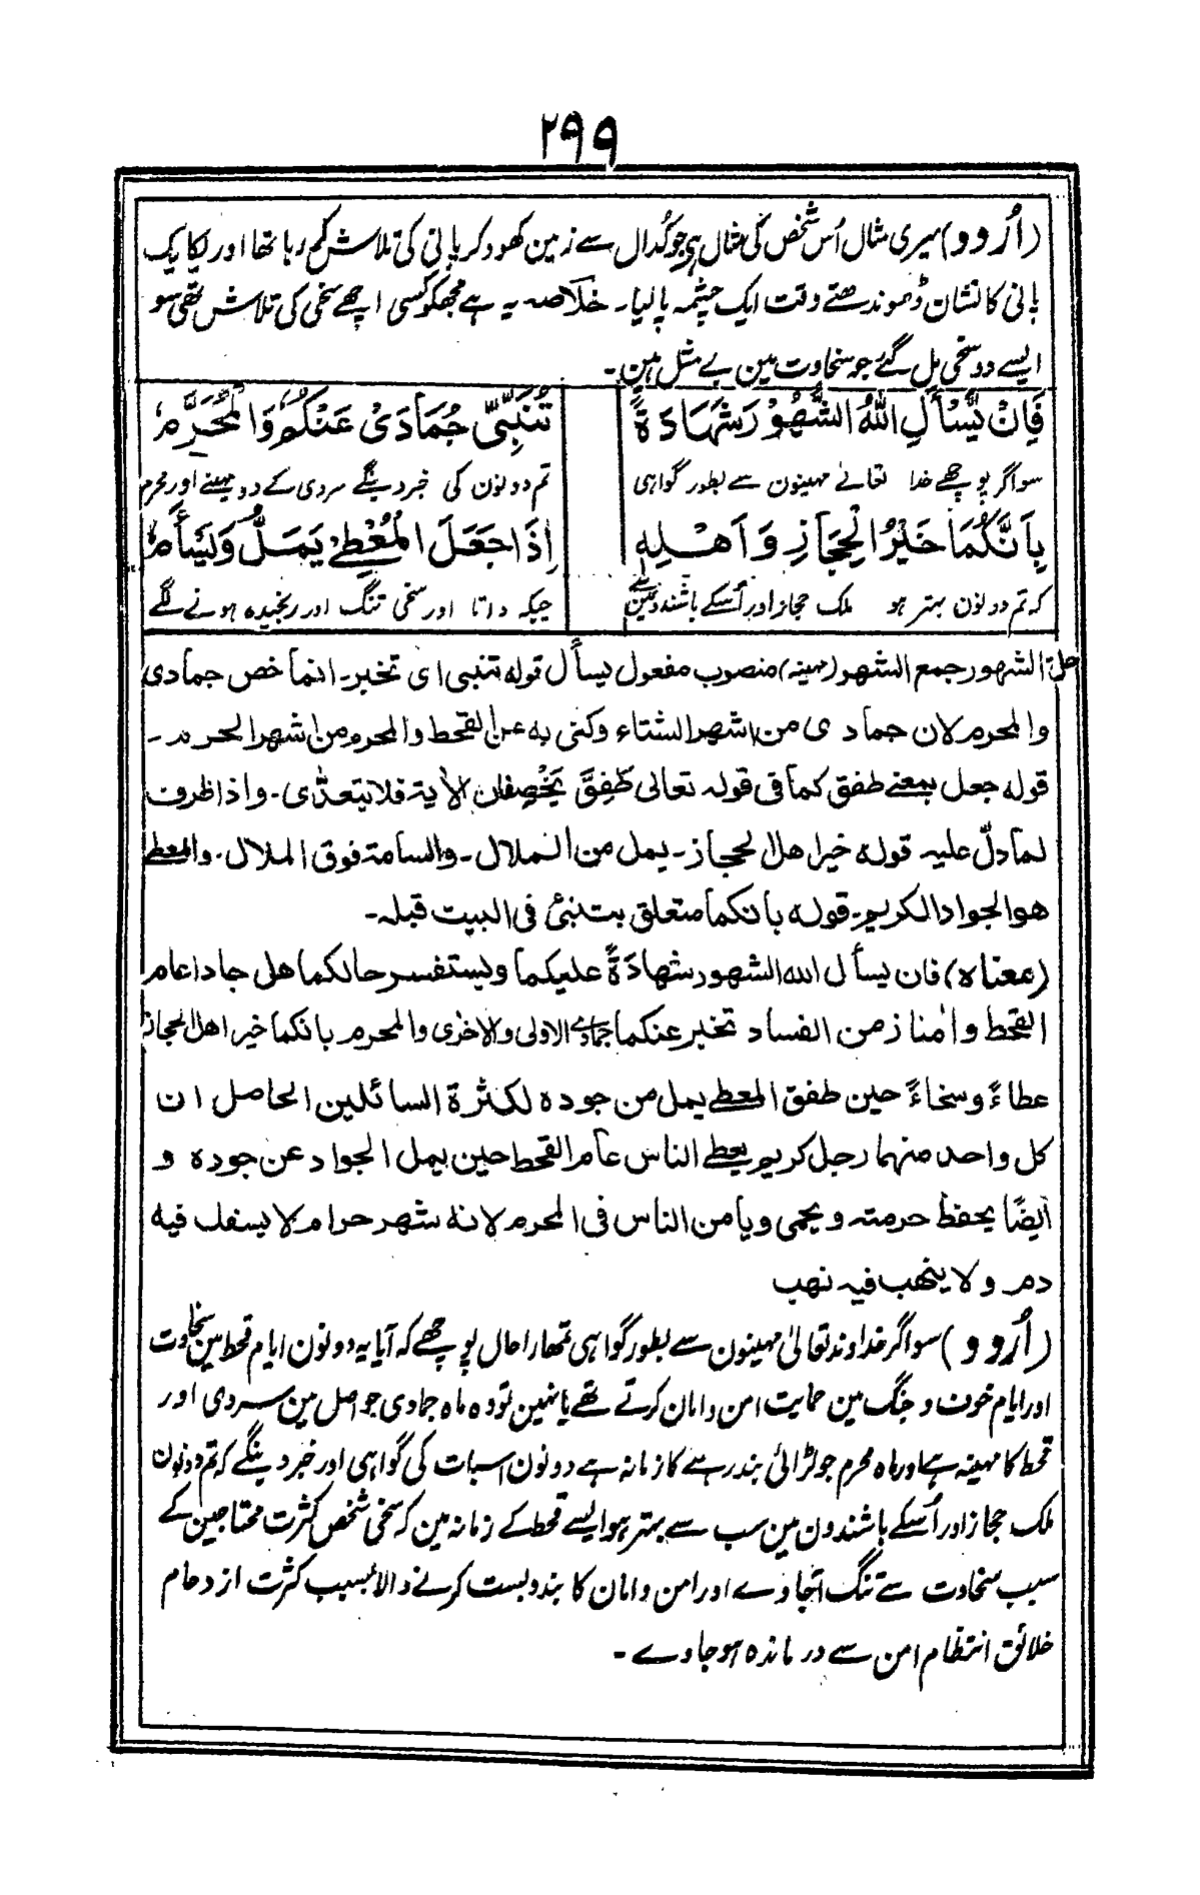 ٢٩٩
(اُردو) میری مثال اُس شخص کی مثال ہی جو کُدال سے زمین کھود کر پانی کی تلاش کر رہا تھا اور یکایک
پانی کا نشان ڈھونڈھتے وقت ایک چشمہ پا لیا۔ خلاصہ یہ ہے مجھکو کسی اچھے سخی کی تلاش تھی سو
ایسے دو سخی مل گئے جو سخاوت مین بے مثل ہین۔
فَاِنْ يَّسْأَلِ اللهُ الشُّهُوْرَ شَهَادَةً تُنَبِّئُ جُمَادَىْ عَنْكُمْ وَالْمُحَرَّمُ
سو اگر پوچھے خدا تعالےٰ مہینون سے بطور گواہی تم دونون کی خبر دینگے سردی کے دو مہینے اور محرم
بِاَنَّكُمَا خَيْرُ الْحِجَازِ وَاَهْلِهٖ اِذَا جَعَلَ الْمُعْطِيْ يَمَلُّ وَيَسْأَمُ
کہ تم دونون بہتر ہو ملک حجاز اور اُسکے باشندونمین سے جبکہ داتا اور سخی تنگ اور رنجیدہ ہونے لگے
حل: الشهور جمع الشهر (مہینہ) منصوب مفعول يسأل قوله تنبى اى تخبر۔ انما خص جمادى
والمحرم لان جمادى من اشهر الشتاء وكنى به عن القحط والمحرم من اشهر الحرم۔
قوله جعل بمعنے طفق كما فى قوله تعالى طَفِقَ يَخْصِفَان الاٰية فلا يتعدّى۔ واذا ظرف
لما دلّ عليه قوله خير اهل الحجاز۔ يمل من الملال۔ والسامة فوق الملال۔ والمعطے
هو الجواد الكريم۔ قوله بانكما متعلق بتنبئ فى البيت قبله۔
(معناه) فان يسأل الله الشهور شهادةً عليكما ويستفسر حالكما هل جادا عام
القحط وامنا زمن الفساد تخبر عنكما جمادے الاولى والاخرى والمحرم بانكما خير اهل الحجاز
عطاءً وسخاءً حين طفق المعطے يمل من جوده لكثرة السائلين الحاصل ان
كل واحد منهما رجل كريم يعطے الناس عام القحط حين يمل الجواد عن جوده و
ايضًا يحفظ حرمته ويحمى ويامن الناس فى المحرم لانه شهر حرام لا يسفك فيه
دم ولا ينهب فيه نهب
(اُردو) سو اگر خداوند تعالیٰ مہینون سے بطور گواہی تمھارا حال پوچھے کہ آیا یہ دونون ایام قحط مین سخاوت
اور ایام خوف و جنگ مین حمایت امن و امان کرتے تھے یا نہین تو وہ ماہ جمادی جو اصل مین سردی اور
قحط کا مہینہ ہے اور ماہ محرم جو لڑائی بند رہنے کا زمانہ ہے دونون اسبات کی گواہی اور خبر دینگے کہ تم دونون
ملک حجاز اور اُسکے باشندون مین سب سے بہتر ہو ایسے قحط کے زمانہ مین کہ سخی شخص کثرت محتاجین کے
سبب سخاوت سے تنگ آجاوے اور امن و امان کا بندوبست کرنے والا بسبب کثرت ازدحام
خلائق انتظام امن سے درماندہ ہو جاوے۔